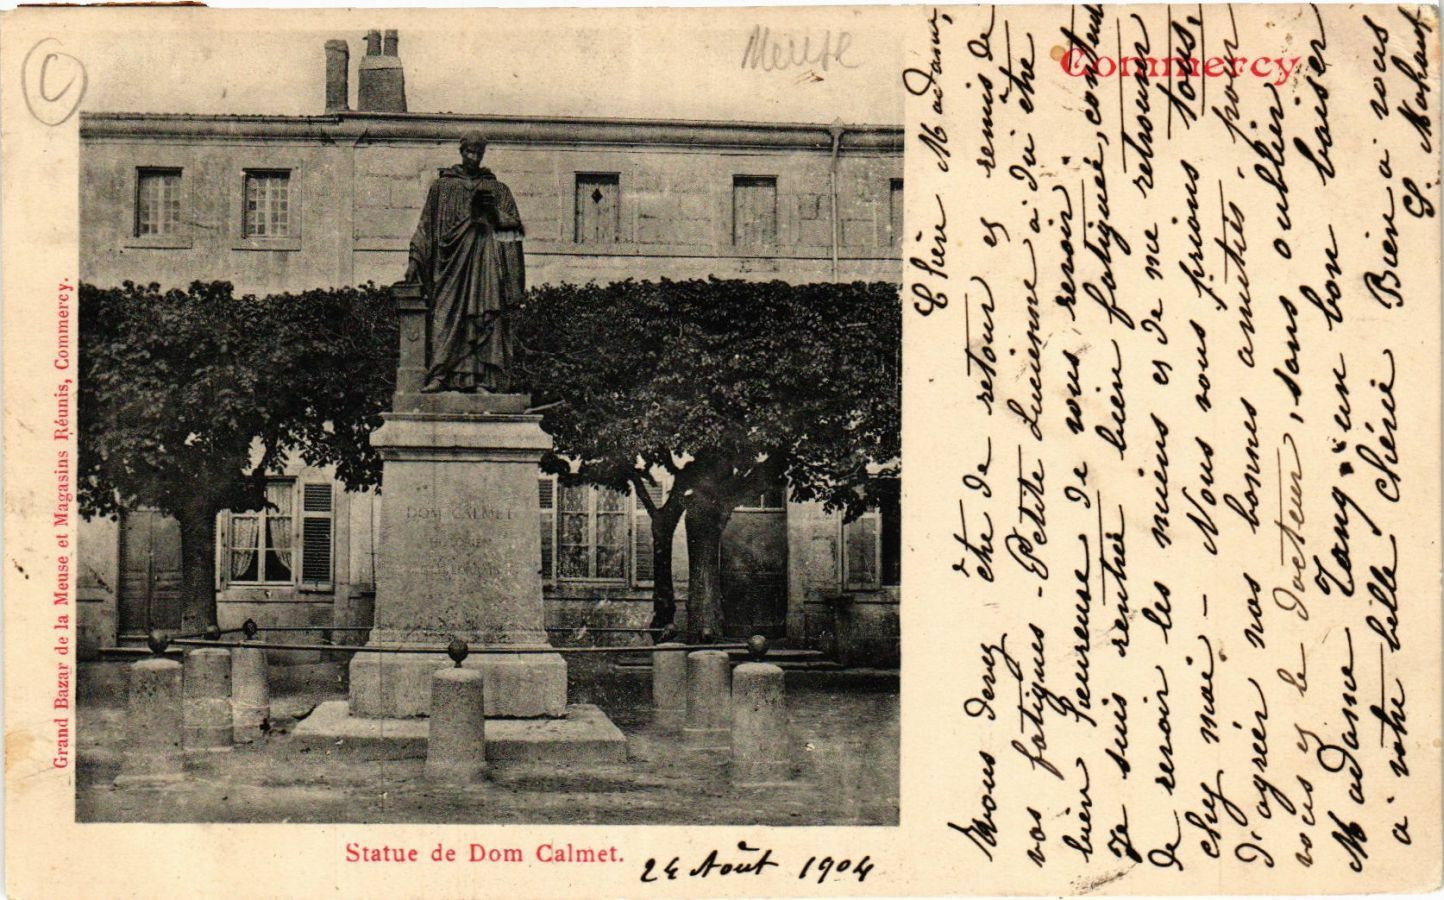 C
Meuse
Commercy
Grand Bazar de la Meuse et Magasins Réunis, Commercy.
DOM CALMET
Statue de Dom Calmet.
24 Août 1904
Chère Madame,
Vous devez être de retour et remis de
vos fatigues - Petite Lucienne a dû être
bien heureuse de vous revoir.
Je suis rentrée bien fatiguée, contente
de revoir les miens et de me retrouver
chez moi - Nous vous prions tous,
d'agréer nos bonnes amitiés, pour
vous et le Docteur, sans oublier
Madame un bon baiser
à votre belle chérie Bien à vous